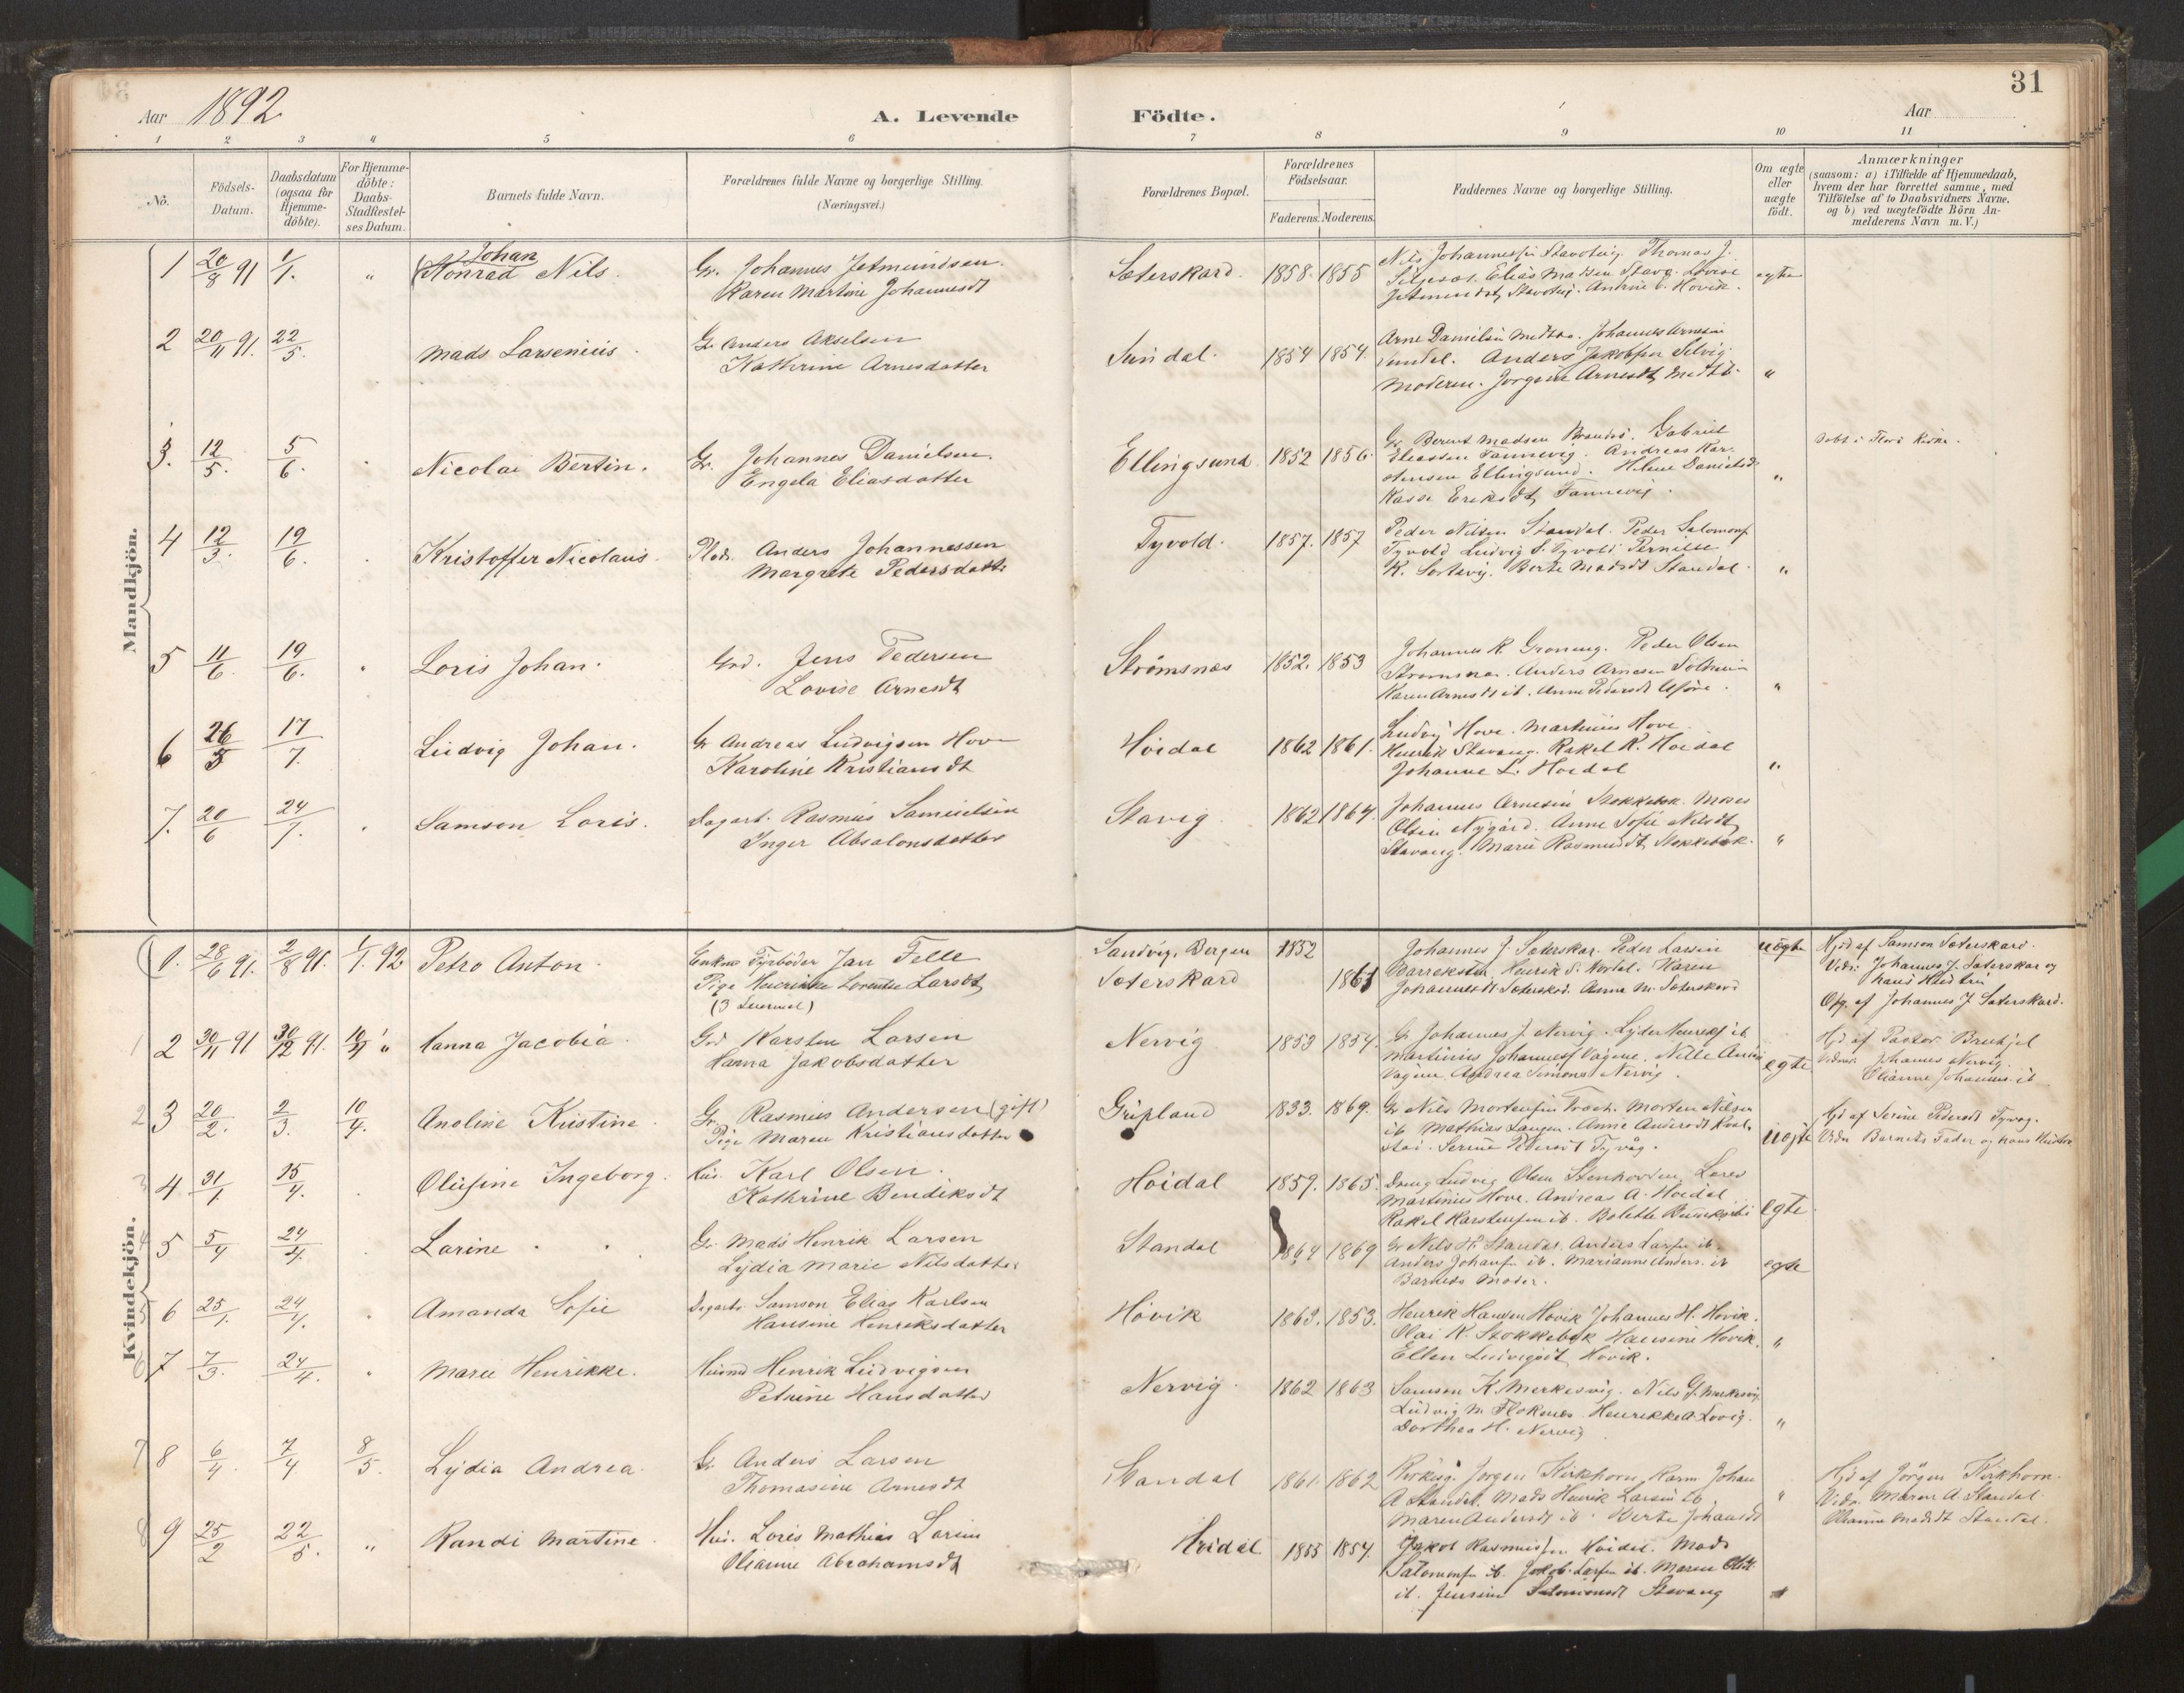 31
Aar 1892
A. Levende Födte.
Aar
1 2 3 4 5 6 7 8 9 10 11
No.
Födsels-Datum.
Daabsdatum (ogsaa for Hjemme-döbte).
For Hjemme-döbte: Daabs-Stadfæstel-ses Datum.
Barnets fulde Navn.
Forældrenes fulde Navne og borgerlige Stilling.
(Næringsvei.)
Forældrenes Bopæl.
Forældrenes Födselsaar.
Faderens. Moderens.
Faddernes Navne og borgerlige Stilling.
Om ægte eller uægte födt.
Anmærkninger
(saasom: a) i Tilfælde af Hjemmedaab, hvem der har forrettet samme, med Tilföielse af to Daabsvidners Navne, og b) ved uægtefödte Börn An-melderens Navn m. V.)
Mandkjön.
1 20/8 91 1/1. " Johan
Konrad Nils. Gr. Johannes Jetmundsen.
Karen Martine Johannesdt
Sæterskard. 1858. 1855
Nils Johannessen Stavang. Thomas J.
Elias Madsen Stavg. Lovise
Hovik. egte
2 20/11 91. 22/5. Mads Larsenius. Gr. Anders Akselsen
Kathrine Arnesdatter
Sundal. 1854 1854.
Arne Danielsen Johannes Arnesen
Sundal. Anders Jakobsen Selvig
Moderen. Jorgine Arnesdt "
3. 12/5. 5/6. Nicolai Bertin. Gr. Johannes Danielsen.
Engela Eliasdatter
Ellingsund 1852 1856.
Gr. Berent Madsen Gabriel
Eliassen Fannevig. Andreas Kar-
stensen Ellingsund. Helene Danielsd
Eriksdt Fannevig. "
Döbt i Florö Kirke.
4 12/3. 19/6. Kristoffer Nicolaus. Plads. Anders Johannessen
Margrete Pedersdatter
Tyvold. 1857. 1857
Peder Nilsen Standal. Peder Salomons
Tyvold Ludvig S. Tyvold Pernille
K. Berte Madsdt Standal. "
5 11/6 19/6. Loris Johan. Grd. Jens Pedersen
Lovise Arnesdt
Strömsnæs 1852. 1853
Johannes K. Groneng. Peder Olsen
Anders Arnesen Solheim
Karen Arnesdt ib. Anne Pedersdt "
6 26/5 17/7. Ludvig Johan. Gr Andreas Ludvigsen Hove
Karoline Kristiansdt
Höidal 1862 1861.
Ludvig Hove. Martinus Hove
Henrik Stavang. Rakel K. Hoidal
Johanne L. Hoidal "
7. 20/6 24/7. Samson Loris. Dagarb. Rasmus Samuelsen
Inger Absalonsdatter
Stavig. 1862 1864.
Johannes Arnesen Stokkebæk. Moses
Olsen Nygård. Anne Sofie Nilsdt
Stavang. Marie Rasmusdt Stokkebæk. "
Kvindekjön.
1. 28/6 91. 2/8 91. 1/1. 92 Petro Anton. Enkem Fyrböder Jan Felle
Pige Henrikke Lorentse Larsdt
(3 Leiermal)
Sandvig. Bergen 1852
Sæterskard
Johannes J. Sæterskar. Peder Larsen
Barreksten, Henrik S. Karen
Johannesdt Sæterskd. Anna M. Sæterskard
uægte Hjd af Samson Sæterskard.
Vidn: Johannes J. Sæterskar og
hans Hustru
Opg. af Johannes J. Sæterskard.
1 2 30/11 91 30/12 91. 10/4 " Hanna Jacobia. Grd Karsten Larsen
Hanna Jakobsdatter
Nervig 1853 1854.
Gr Johannes J. Nervig. Lyder Henriks ib
Martinius Johanness Vågene. Nille
Vågene Andrea Simons Nervig. egte.
Hjd af Pastor
Vidner: Johannes Nervig
Olianne Johannes. ib
2 3 20/2. 2/3. 10/4. Anoline Kristine. Gr. Rasmus Andersen (gift)
Pige Maren Kristiansdatter
Gripland 1833. 1869.
Gr Nils Mortensen Morten Nilsen
ib Mathias Langen. Anne Andersdt
Serine Pedersdt Tyvåg. uægte
Hjd af Serine Pedersdt Tyvåg.
Vidn Barnets Fader og hans Hustru
3 4 31/1. 15/4. Olufine Ingeborg. Hus. Karl Olsen.
Kathrine Bendiksdt
Höidal 1859. 1865.
Dreng Ludvig Olsen Stenhovden Lares
Martinius Hove. Andreas A. Hoidal
Rakel Karstensen ib. Bolette egte.
4 5 5/4 24/4. Larine. Gr. Mads Henrik Larsen
Lydia Marie Nilsdatter
Standal 1864 1869
Gr Nils H. Standal. Anders Larsen ib.
Anders Johans ib. Marianne Anders. ib
Barnets Moder. egte
5 6 25/1. 24/4. Amanda Sofie Dagarb. Samson Elias Karlsen
Hansine Henriksdatter
Hövik 1863. 1853.
Henrik Hansen Hovik Johannes H. Hovik.
Olai K. Stokkebæk Hansine Hovik.
Ellen Ludvigsdt Hovik. "
6 7 7/3. 24/4. Maren Henrikke. Husmd Henrik Ludvigsen
Petrine Hansdatter
Nervig. 1862 1863
Samson K. Merkesvig. Nils G. Merkesvig
Ludvig M. Flokenes. Henrikke A. Lovig.
Dorthea H. Nervig "
7 8 6/4. 7/4 8/5. Lydia Andrea. Gr. Anders Larsen
Thomasine Arnesdt
Standal 1861. 1862
Kirkesg. Jorgen Kirkhorn Johan
A Standal. Mads Henrik Larsen ib.
Maren Andersdt ib. Berte Johansdt "
Hjd af Jörgen Kirkhorn.
Vidn. Maren A. Standal.
Olianne Madsdt Standal.
8 9 25/2 22/5. " Randi Martine. Hus. Loris Mathias Larsen
Olianne Abrahamsdt
Höidal 1855 1854.
Jakob Rasmussen Höidal. Mads
Salomonsen ib. Jakob Larsen ib. Maren
ib. Jensine Salomonsdt Stavang "